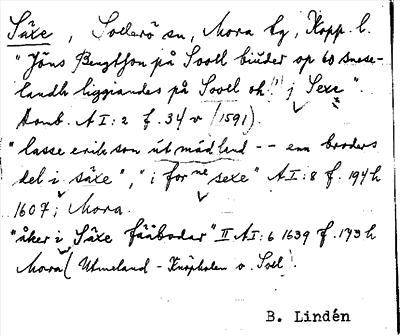 Säxe, Sollerö sn, Mora tg, Kopp. l.
"Jöns Bengtson på Sooll biuder op 60 snese-
landh liggiandes på Sooel oh (!) i Sexe".
Domb. A I:2 f. 34 v (1591).
"lasse erikson ut mäd lend -- enn broders
del i säxe", "i for ne sexe" A I:8 f. 194 h
1607; Mora.
"åker i Säxe fääbodar" II A I:6 1639 f. 173 h
Mora (Utmeland - o. Soll).
B. Lindén